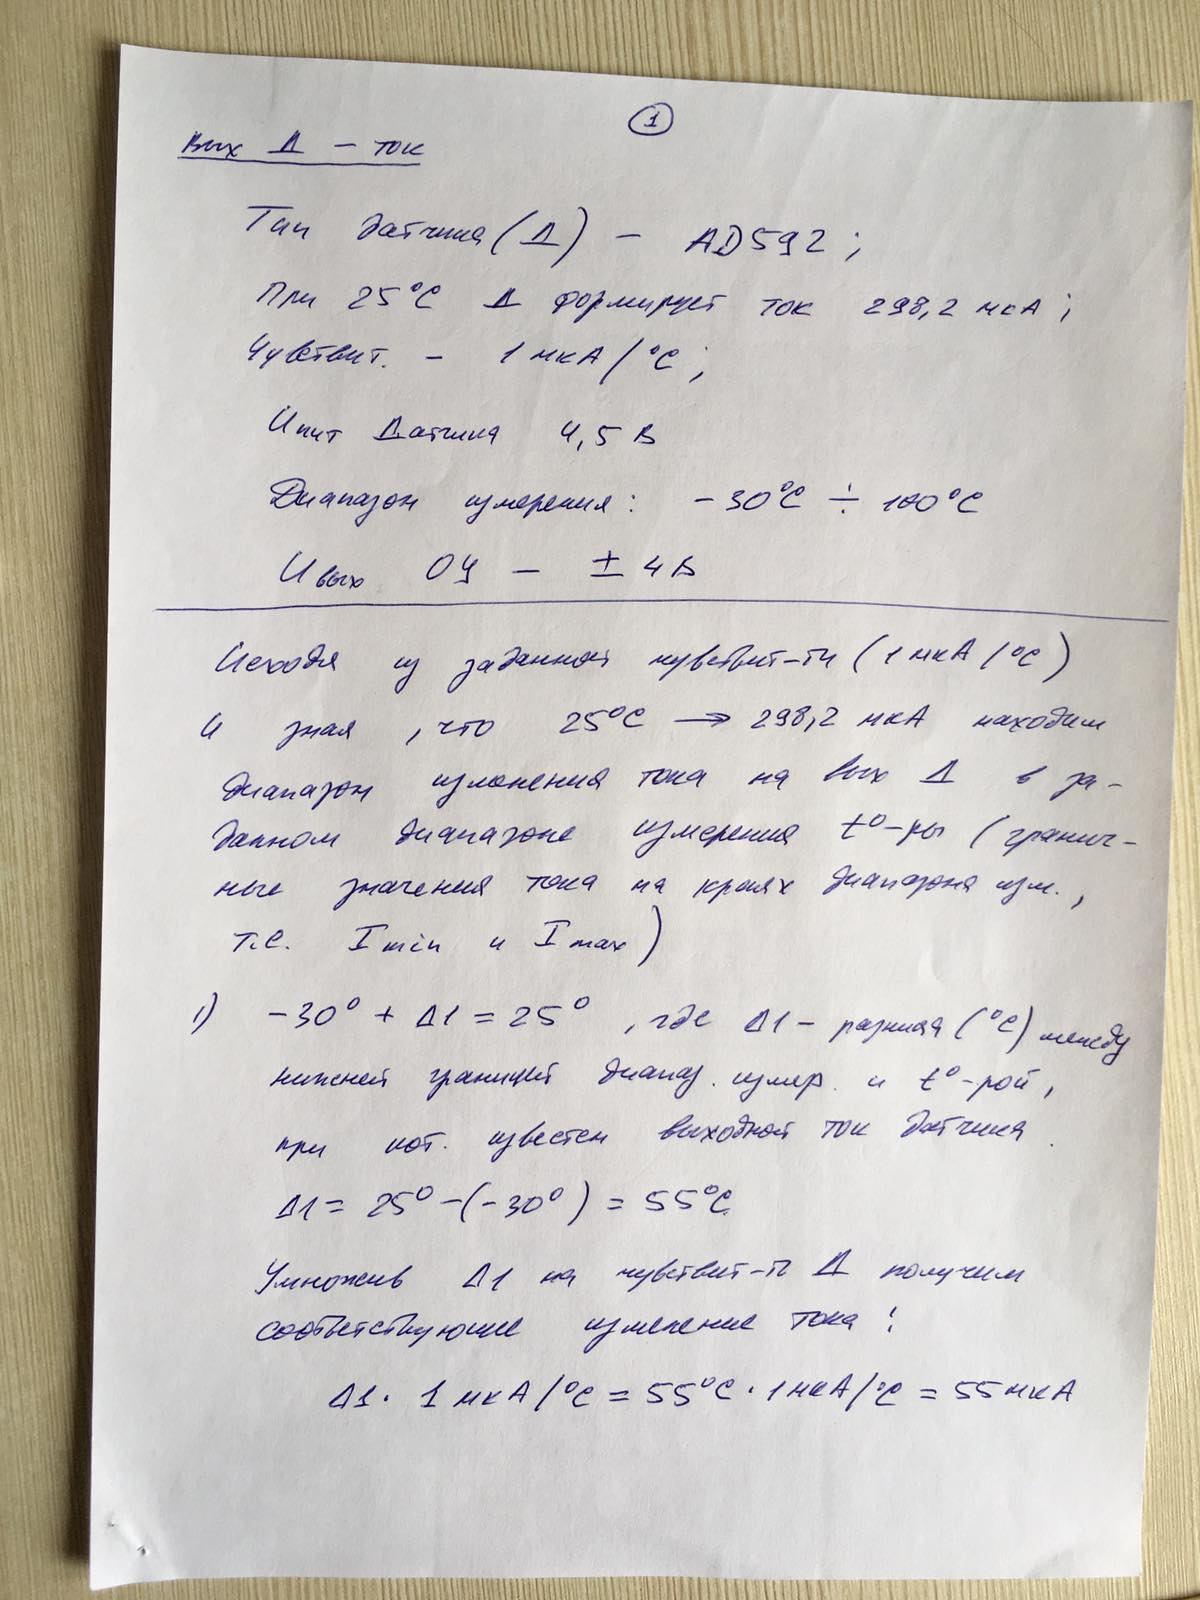 1
Вых Д – ток
Тип датчика (Д) – AD592;
При 25°C Д формирует ток 298,2 мкА;
Чувствит. – 1 мкА/°C;
Uпит Датчика 4,5 В
Диапазон измерения: -30°C ÷ 100°C
Uвых ОУ – ± 4 В
Исходя из заданной чувствит-ти (1 мкА/°C)
и зная, что 25°C → 298,2 мкА находим
диапазон изменения тока на вых Д в за-
данном диапазоне измерения t°-ры (гранич-
ные значения тока на краях диапазона изм.,
т.е. Imin и Imax)
1) -30° + Δ1 = 25°, где Δ1 – разница (°C) между
нижней границей диапаз. измер. и t°-рой,
при кот. известен выходной ток датчика.
Δ1 = 25° -(-30°) = 55°C
Умножив Δ1 на чувствит-ть Д получим
соответствующие изменение тока:
Δ1 · 1 мкА/°C = 55°C · 1 мкА/°C = 55 мкА